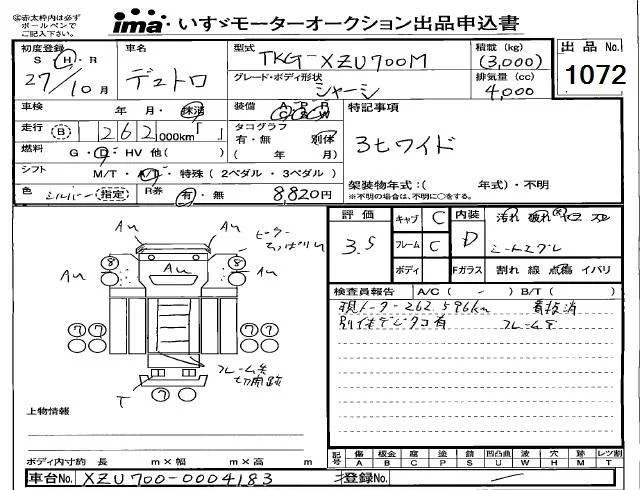 ㊟赤太枠内は必ず
ボールペンで
ご記入下さい。
ima いすゞモーターオークション出品申込書
初度登録
S・H・R
27/10月
車名
デュトロ
型式
TKG-XZU700M
グレード・ボディ形状
シャーシ
積載(kg)
(3,000)
排気量(cc)
4,000
出品No.
1072
車検 年・月・抹消
装備
走行 B 262 000km「 」
タコグラフ
有・無 別体
( 年 月)
燃料 G・D・HV 他( )
シフト M/T・A/T・特殊(2ペダル・3ペダル)
色 シルバー (指定)
R券 有・無 8,820円
特記事項
3tワイド
架装物年式:( 年式)・不明
※不明の場合は、不明に○をする。
評価
3.5
キャブ C
フレーム C
ボディ
内装 D
汚れ 破れ
Fガラス 割れ 線 点傷 イバリ
検査員報告 A/C( - ) B/T( )
現メーター262596km
別体デジタコ有
Au
Au
Au
Au
Au
8
8
7
7
7
7
7
7
T
フレーム
切開跡
上物情報
ボディ内寸約 長 m×幅 m×高 m
記号
傷 板金 腐 塗 錆 凹凸曲 波 穴 跡 レツ割
A B C P S U W H M T
車台No. XZU700-0004183
登録No.